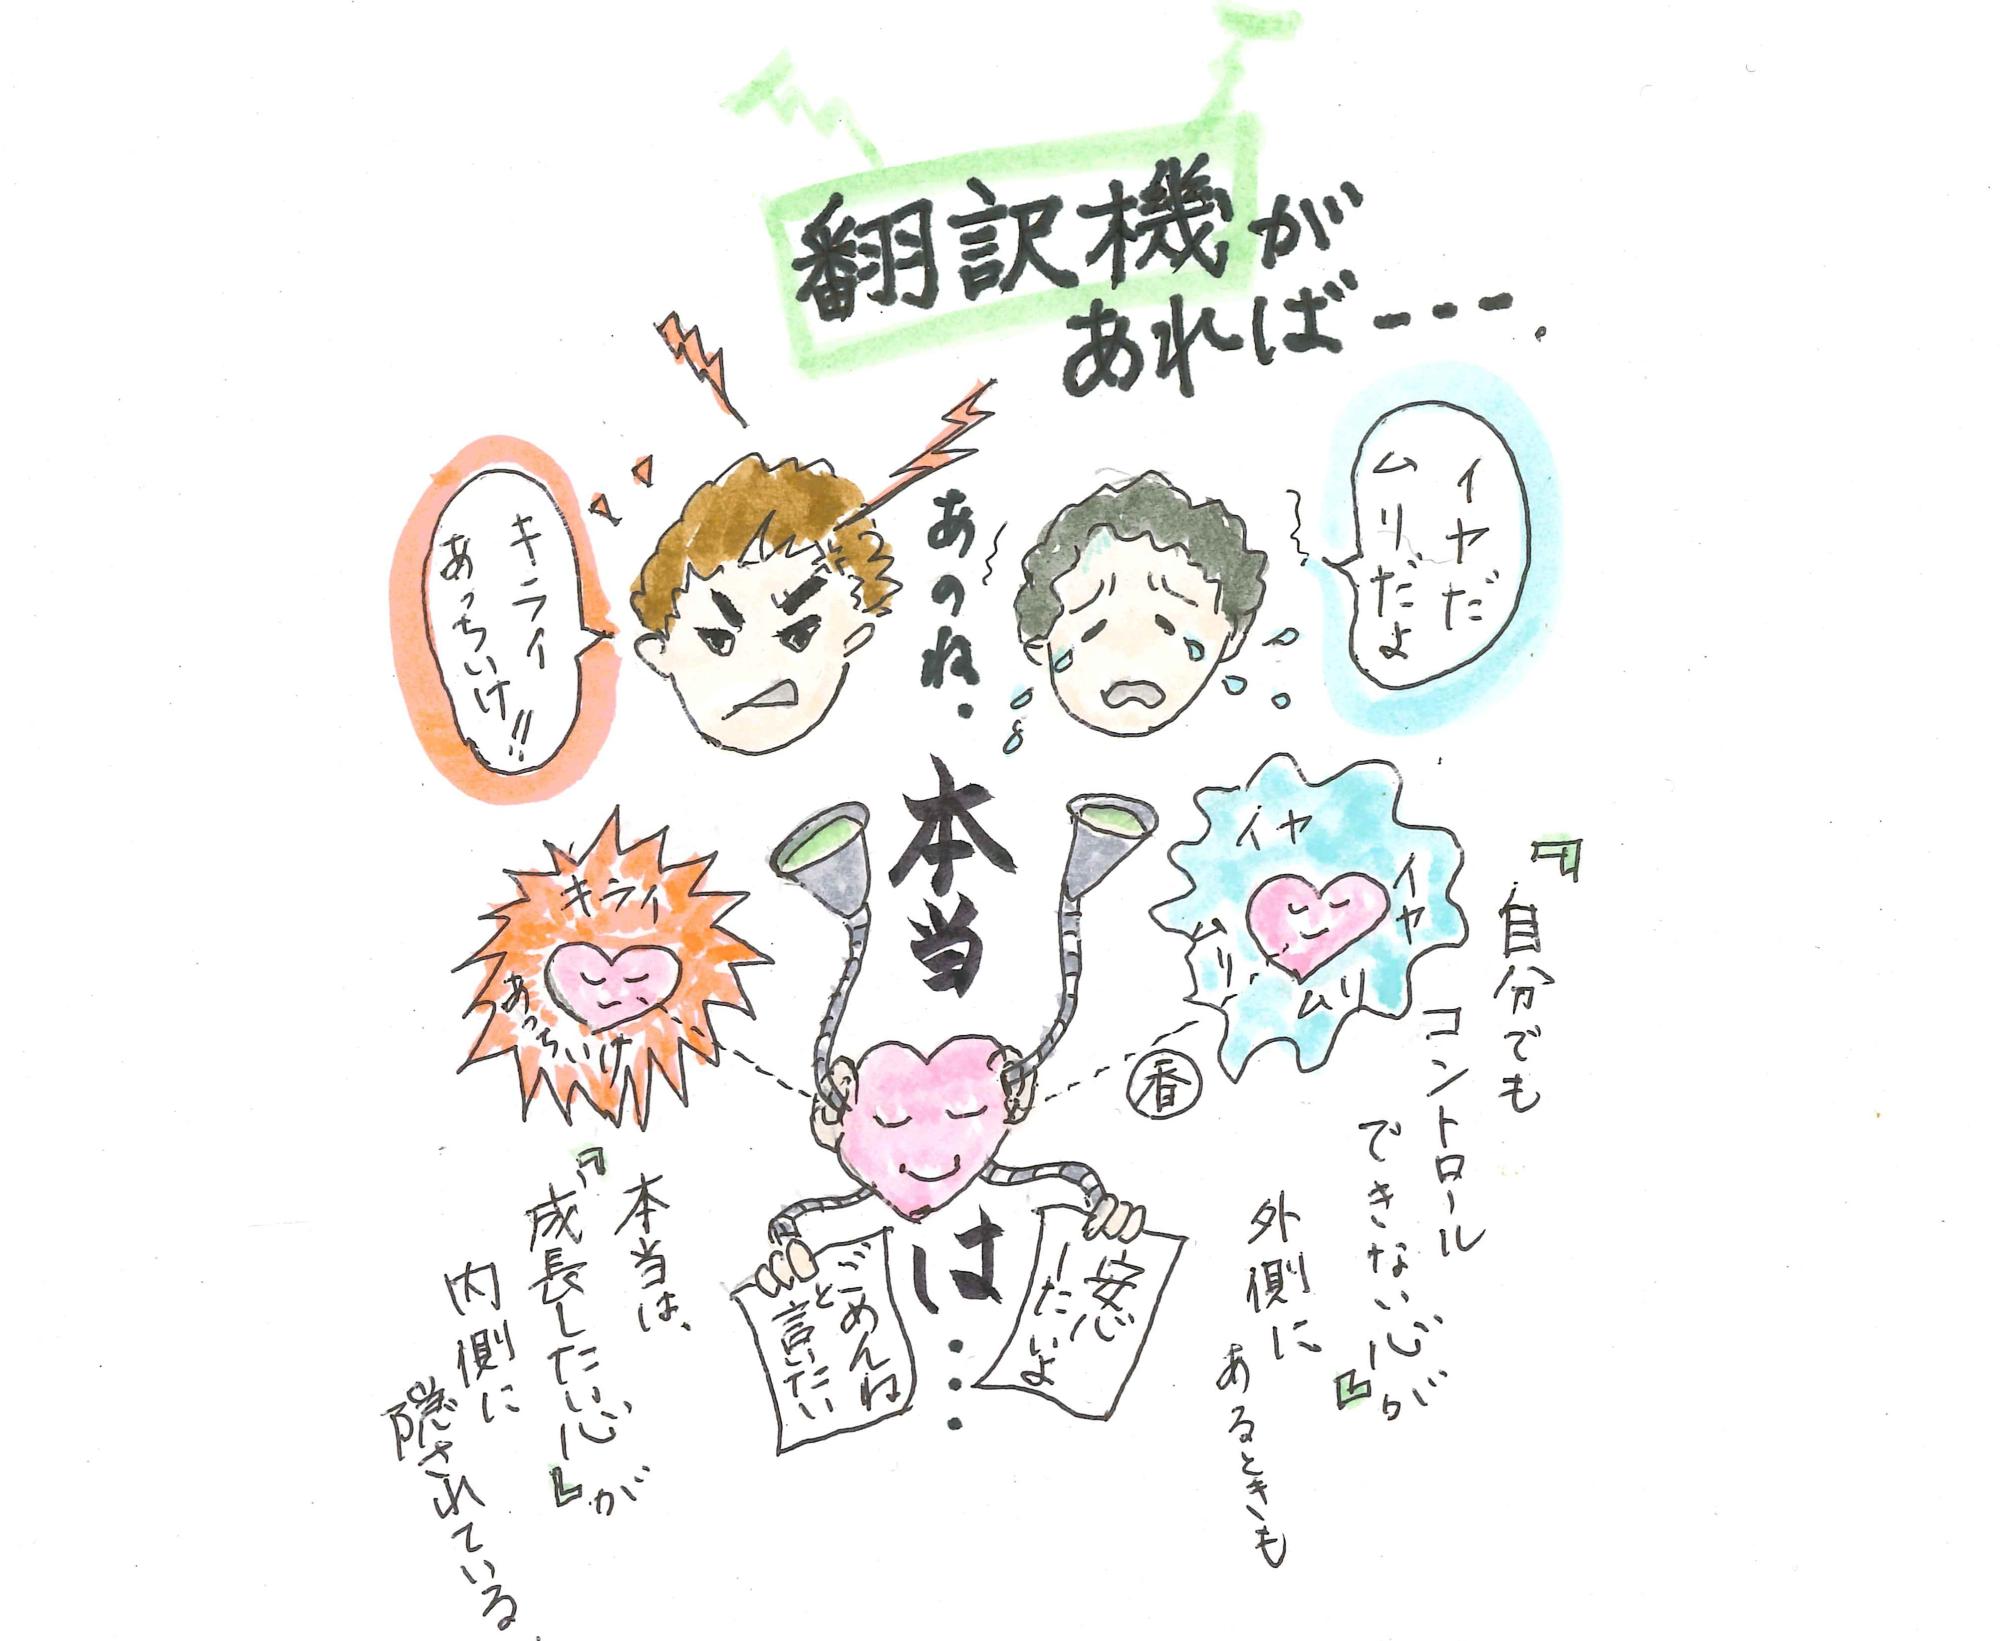 翻訳機が
あれば---.
イヤだ
ムリだよ
あのね.
キライ
あっちいけ!!
本当
は...
イヤ
イヤ
ムリ
ムリ
キライ
あっちいけ
香
安心
したいよ
ごめんね
と
言いたい
『自分でも
コントロール
できない心』が
外側に
あるときも
本当は、
『成長したい心』が
内側に
隠されている.